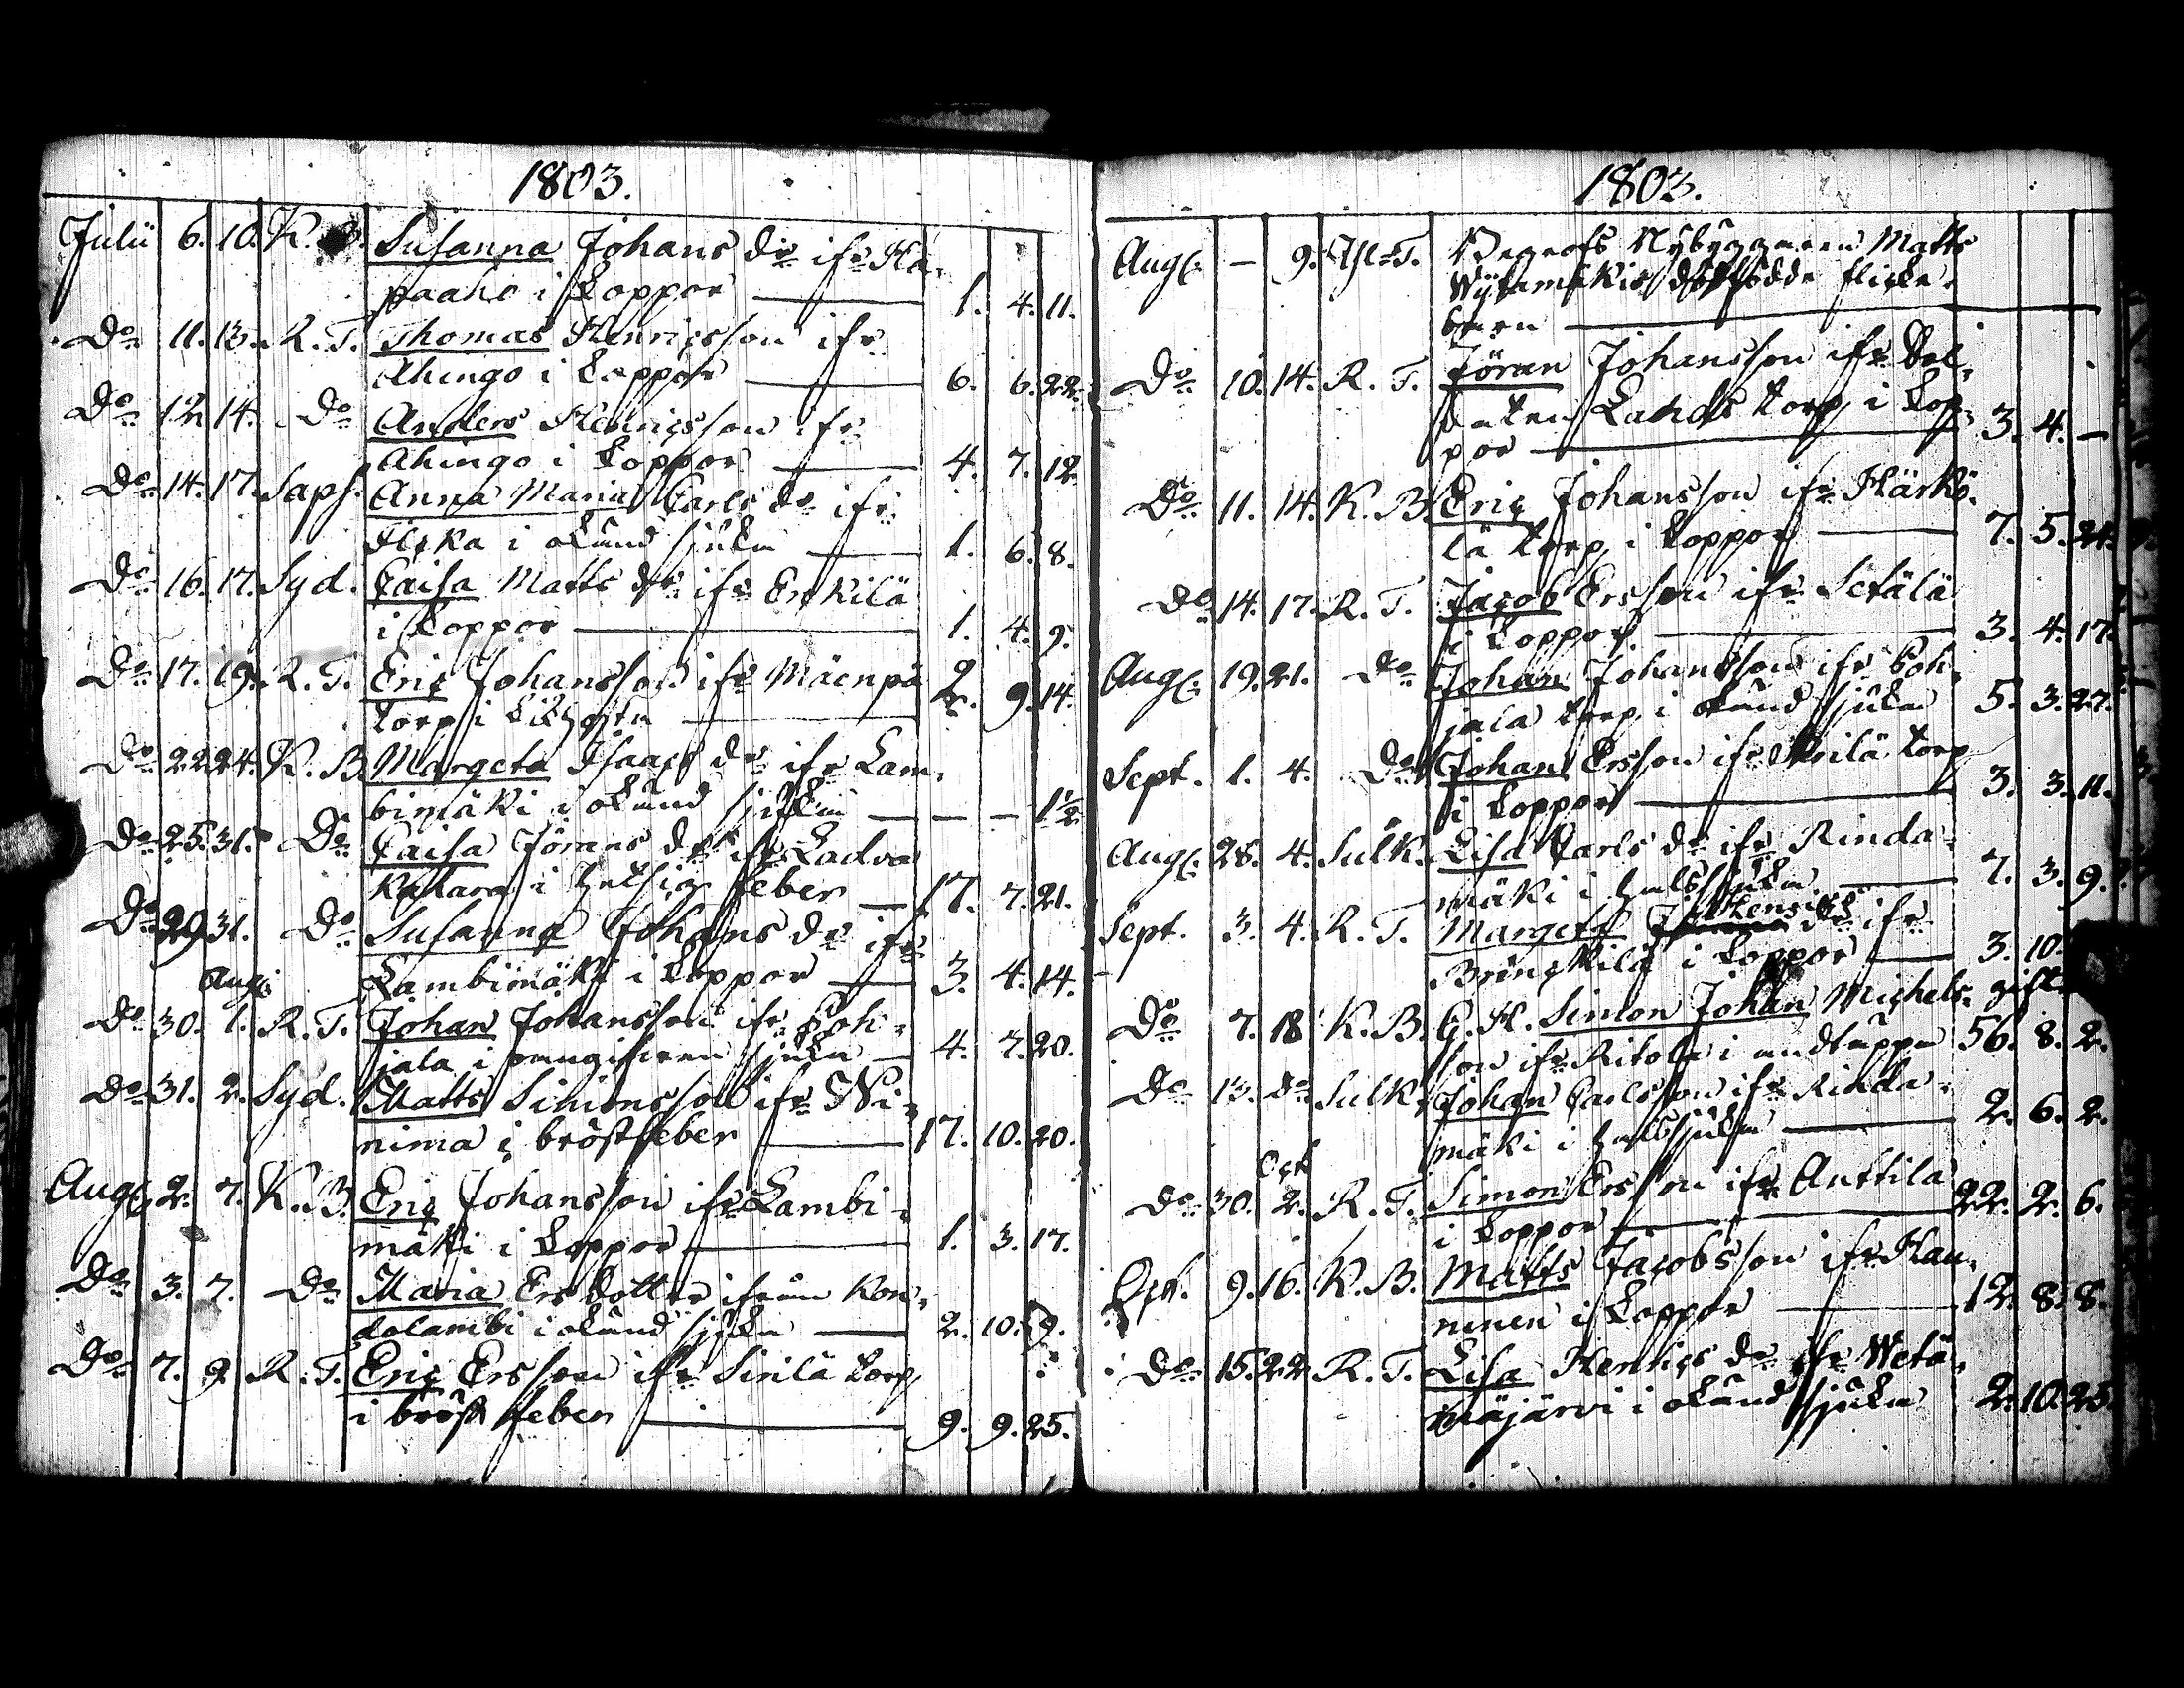 1803.
Julii 6. 10. K. B. Susanna Johans dr ifr Ha-
paaho i koppor 1. 4. 11.
Do 11. 13. R. T. Thomas Henricsson ifr
Ahingo i koppor 6. 6. 22.
Do 12 14. Do Anders Henricsson ifr
Ahingo i koppor 4. 7. 12.
Do 14. 17. Saps. Anna Maria Carls dr ifr
i okänd sjuka 1. 6. 8.
Do 16. 17. Syd. Caisa Matts dr ifr Erkilä
i koppor 1. 4. 9.
Do 17. 19. R. T. Eric Johansson ifr Mäenpä
torp i 2. 9. 14.
Do 22 24. K. B. Margeta Isaacs dr ifr Lam-
bimäki i okänd sjukdom — — 1½
Do 25. 31. Do Caisa Jörans dr ifr Ladva
Katara i hetsig feber 17. 7. 21.
Do 29 31. Do Susanna Johans dr ifr
Lambimäki i koppor 3. 4. 14.
Aug:
Do 30. 1. R. T. Johan Johansson ifr Poh-
jala i sjuka 4. 7. 20.
Do 31. 2. Syd. Matts Simonsson ifr Ni-
nima i bröstfeber 17. 10. 20.
Aug: 2. 7. K. B. Eric Johansson ifr Lambi-
mäki i koppor 1. 3. 17.
Do 3. 7. Do Maria Ers dotter ifrån Kon-
dolambi i okänd sjuka 2. 10. 9.
Do 7. 9. R. T. Eric Ersson ifr Sirilä torp
i bröst feber 9. 9. 25.
1803.
Aug: — 9. Begrofs Nybyggaren Matts
dödfödde flicke-
barn
Do 10. 14. R. T. Jöran Johansson ifr Sol-
daten Lahdis torp i kop-
por 3. 4. —
Do 11. 14. K. B. Eric Johansson ifr Härkö-
lä torp i koppor 7. 5. 21.
Do 14. 17. R. T. Jacob Ersson ifr Setälä
i koppor 3. 4. 17.
Aug: 19. 21. Do Johan Johansson ifr Poh-
jala torp i okänd sjuka 5. 3. 27.
Sept. 1. 4. Do Johan Ersson ifr torp
i koppor 3. 3. 11.
Aug: 28. 4. Sulk. Lisa Carls dr ifr Rinda-
mäki i halssjuka 7. 3. 9.
Sept. 3. 4. R. T. Margeta Henrics dr ifr
Bringkilä i koppor 3. 10.
Do 7. 18 K. B. G. H. Simon Johan Michels- gift
son ifr Ritola i andtäppa 56. 8. 2.
Do 13. Do Sulk. Johan Carlsson ifr Rinda-
mäki i halssjuka 2. 6. 2.
Oct
Do 30. 2. R. T. Simon Ersson ifr Anttila
i koppor 22. 2. 6.
Oct. 9. 16. K. B. Matts Jacobsson ifr Han-
ninen i koppor 12. 8. 8.
Do 15. 22 R. T. Lisa Henrics dr ifr Wetä-
mäjärvi i okänd sjuka 2. 10. 25.